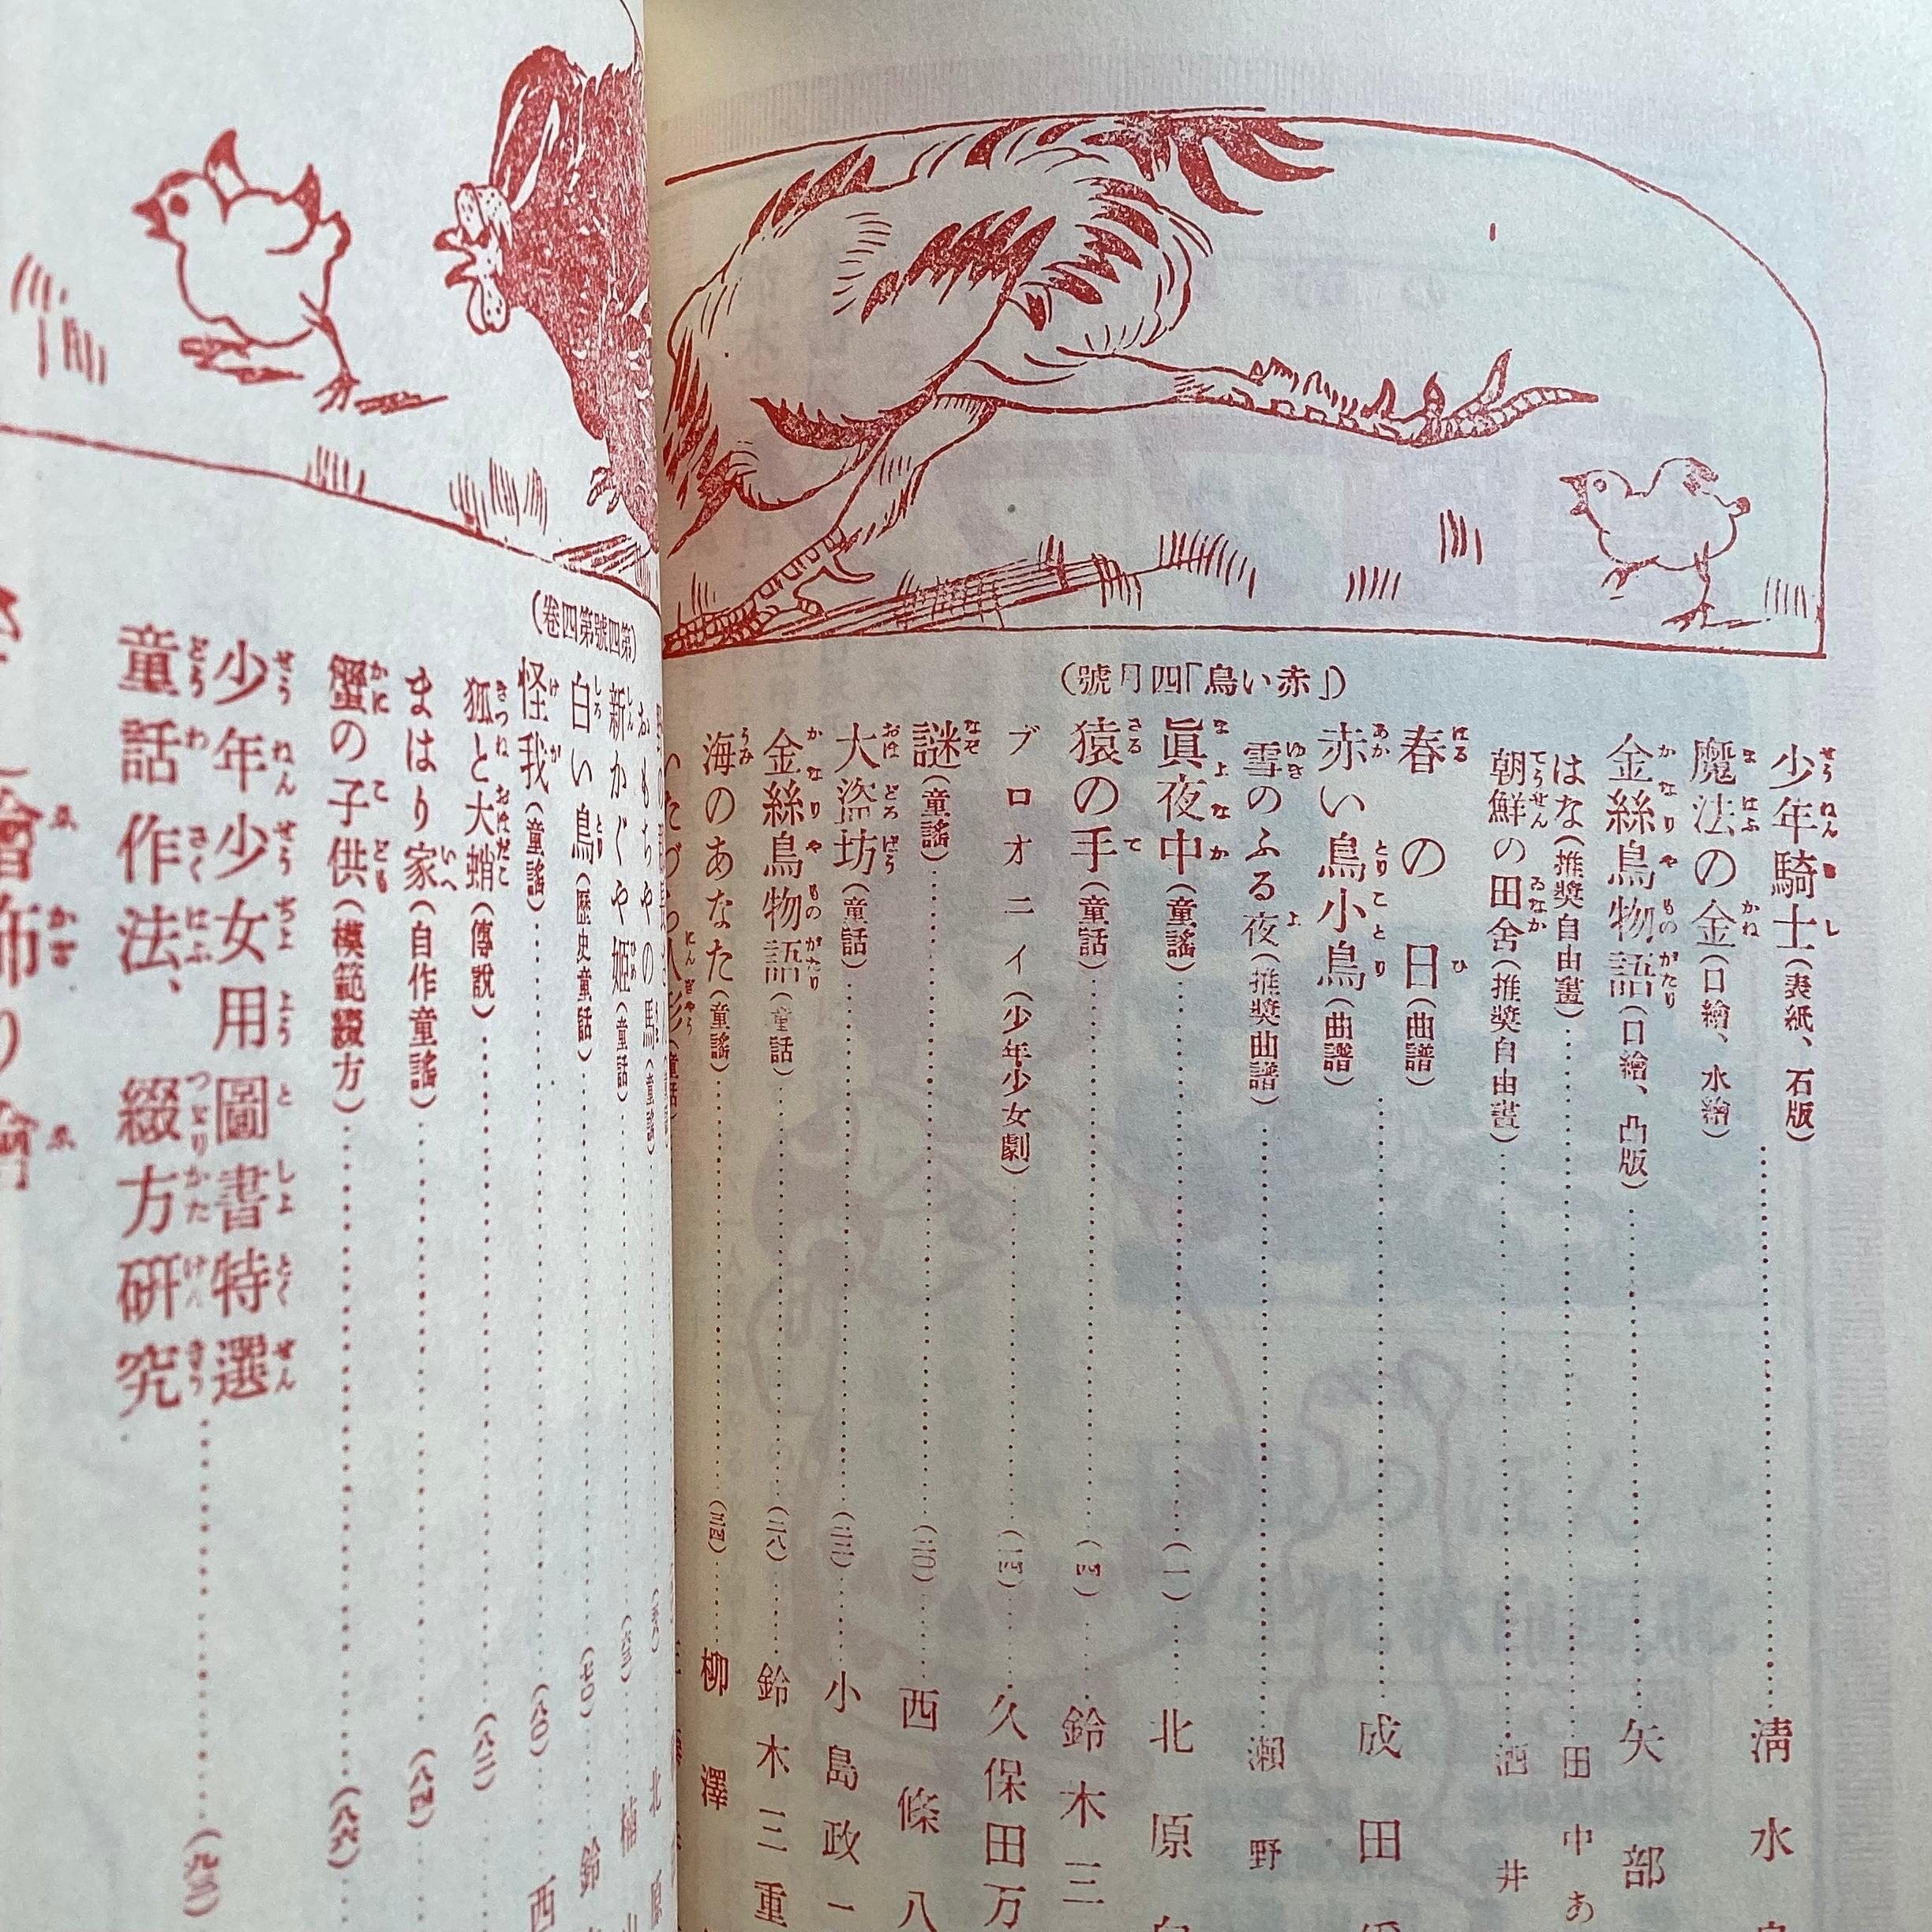 （「赤い鳥」四月號）
少年騎士（表紙、石版）……清水
魔法の金（口繪、水繪）
金絲鳥物語（口繪、凸版）……矢部
はな（推奬自由畫）……田中あ
朝鮮の田舍（推奬自由畫）……酒井
春の日（曲譜）
赤い鳥小鳥（曲譜）……成田
雪のふる夜（推奬曲譜）……瀬野
眞夜中（童謠）……（一）……北原
猿の手（童話）……（四）……鈴木三
ブロオニイ（少年少女劇）……（一四）……久保田万
謎（童謠）……（二〇）……西條八
大盜坊（童話）……（二二）……小島政一
金絲鳥物語（童話）……（二八）……鈴木三重
海のあなた（童謠）……（三四）……柳澤
（第四卷第四號）
おもちやの馬（童謠）……北原
新かぐや姬（童話）……楠
白い鳥（歷史童話）……（七〇）……鈴
怪我（童謠）……（八〇）……西
狐と大蛸（傳說）……（八二）
まはり家（自作童謠）……（八四）
蟹の子供（模範綴方）……（八六）
少年少女用圖書特選
童話作法、綴方硏究……
繪
飾り繪